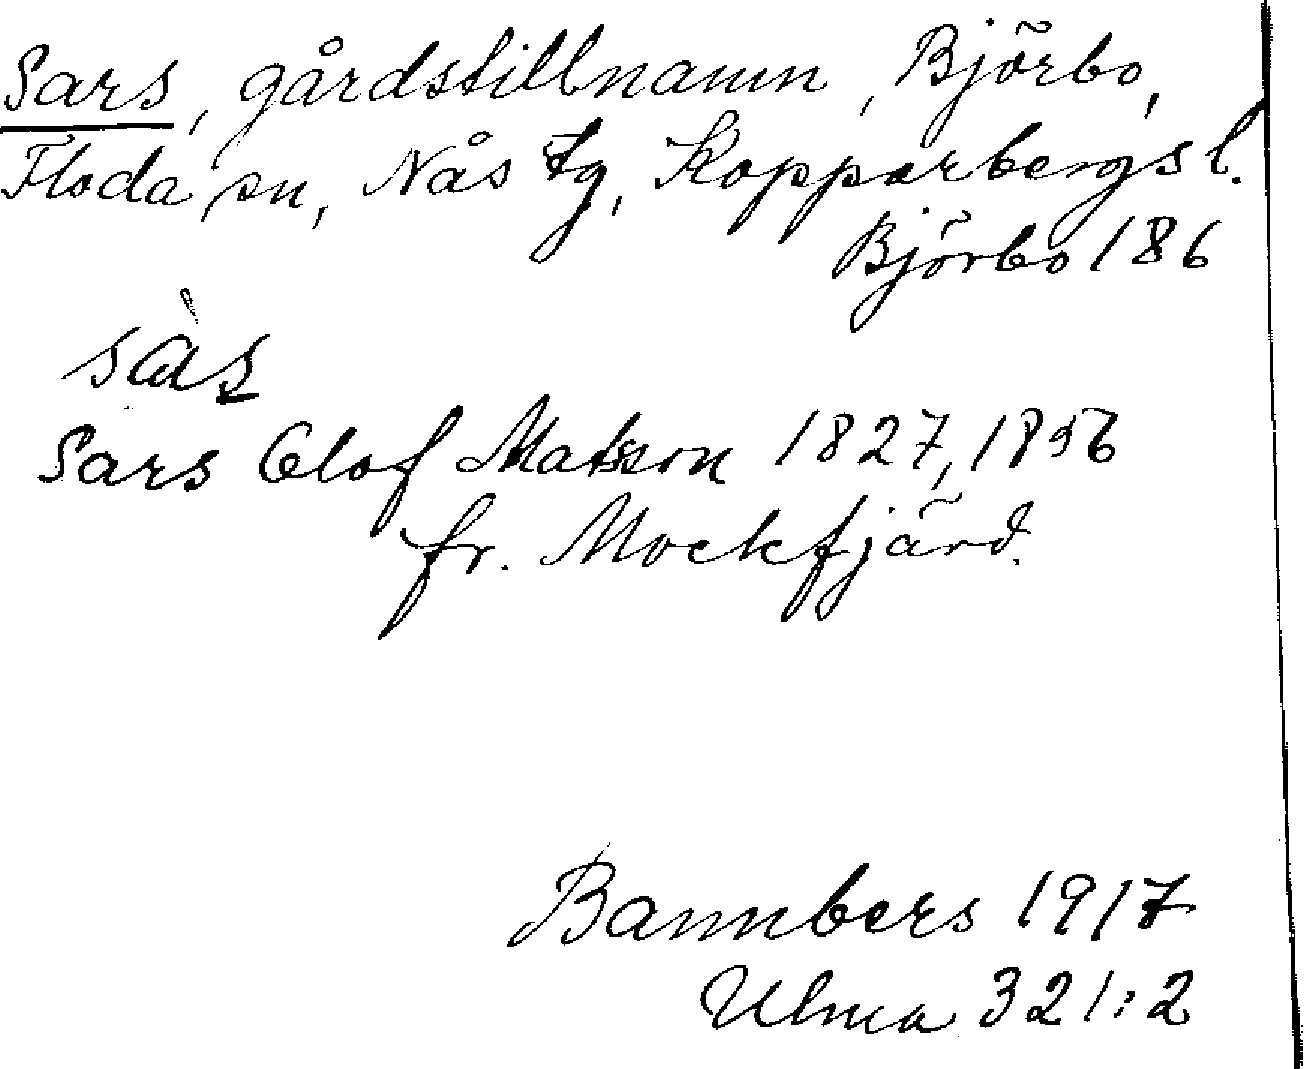 Sars, gårdstillnamn, Björbo,
Floda sn, Nås tg, Kopparbergs l.
Björbo 186
sàs
Sars Olof Matsson 1827, 1856
fr. Mockfjärd.
Bannbers 1917
Ulma 321:2